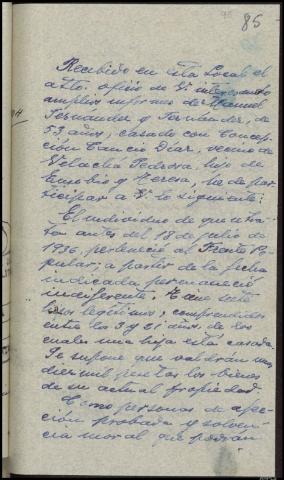 85
Recibido en esta Local el
atto. oficio de V. interesando
amplios informes de Manuel
Fernandez y Fernandez, de
53 años, casado con Concep-
ción Cancio Diaz, vecino de
hijo de
Eusebio y Teresa, he de par-
ticipar a V. lo siguiente:
El individuo de que se tra-
ta antes del 18 de julio de
1936, perteneció al Frente Po-
pular; a partir de la fecha
indicada permaneció
indiferente. Tiene siete
hijos legitimos, comprendidos
entre los 3 y 21 años, de los
cuales una hija está casada.
Se supone que valdrán unas
diez mil pesetas los bienes
de su actual propiedad.
Como personas de afec-
ción probada y solven-
cia moral que podrán